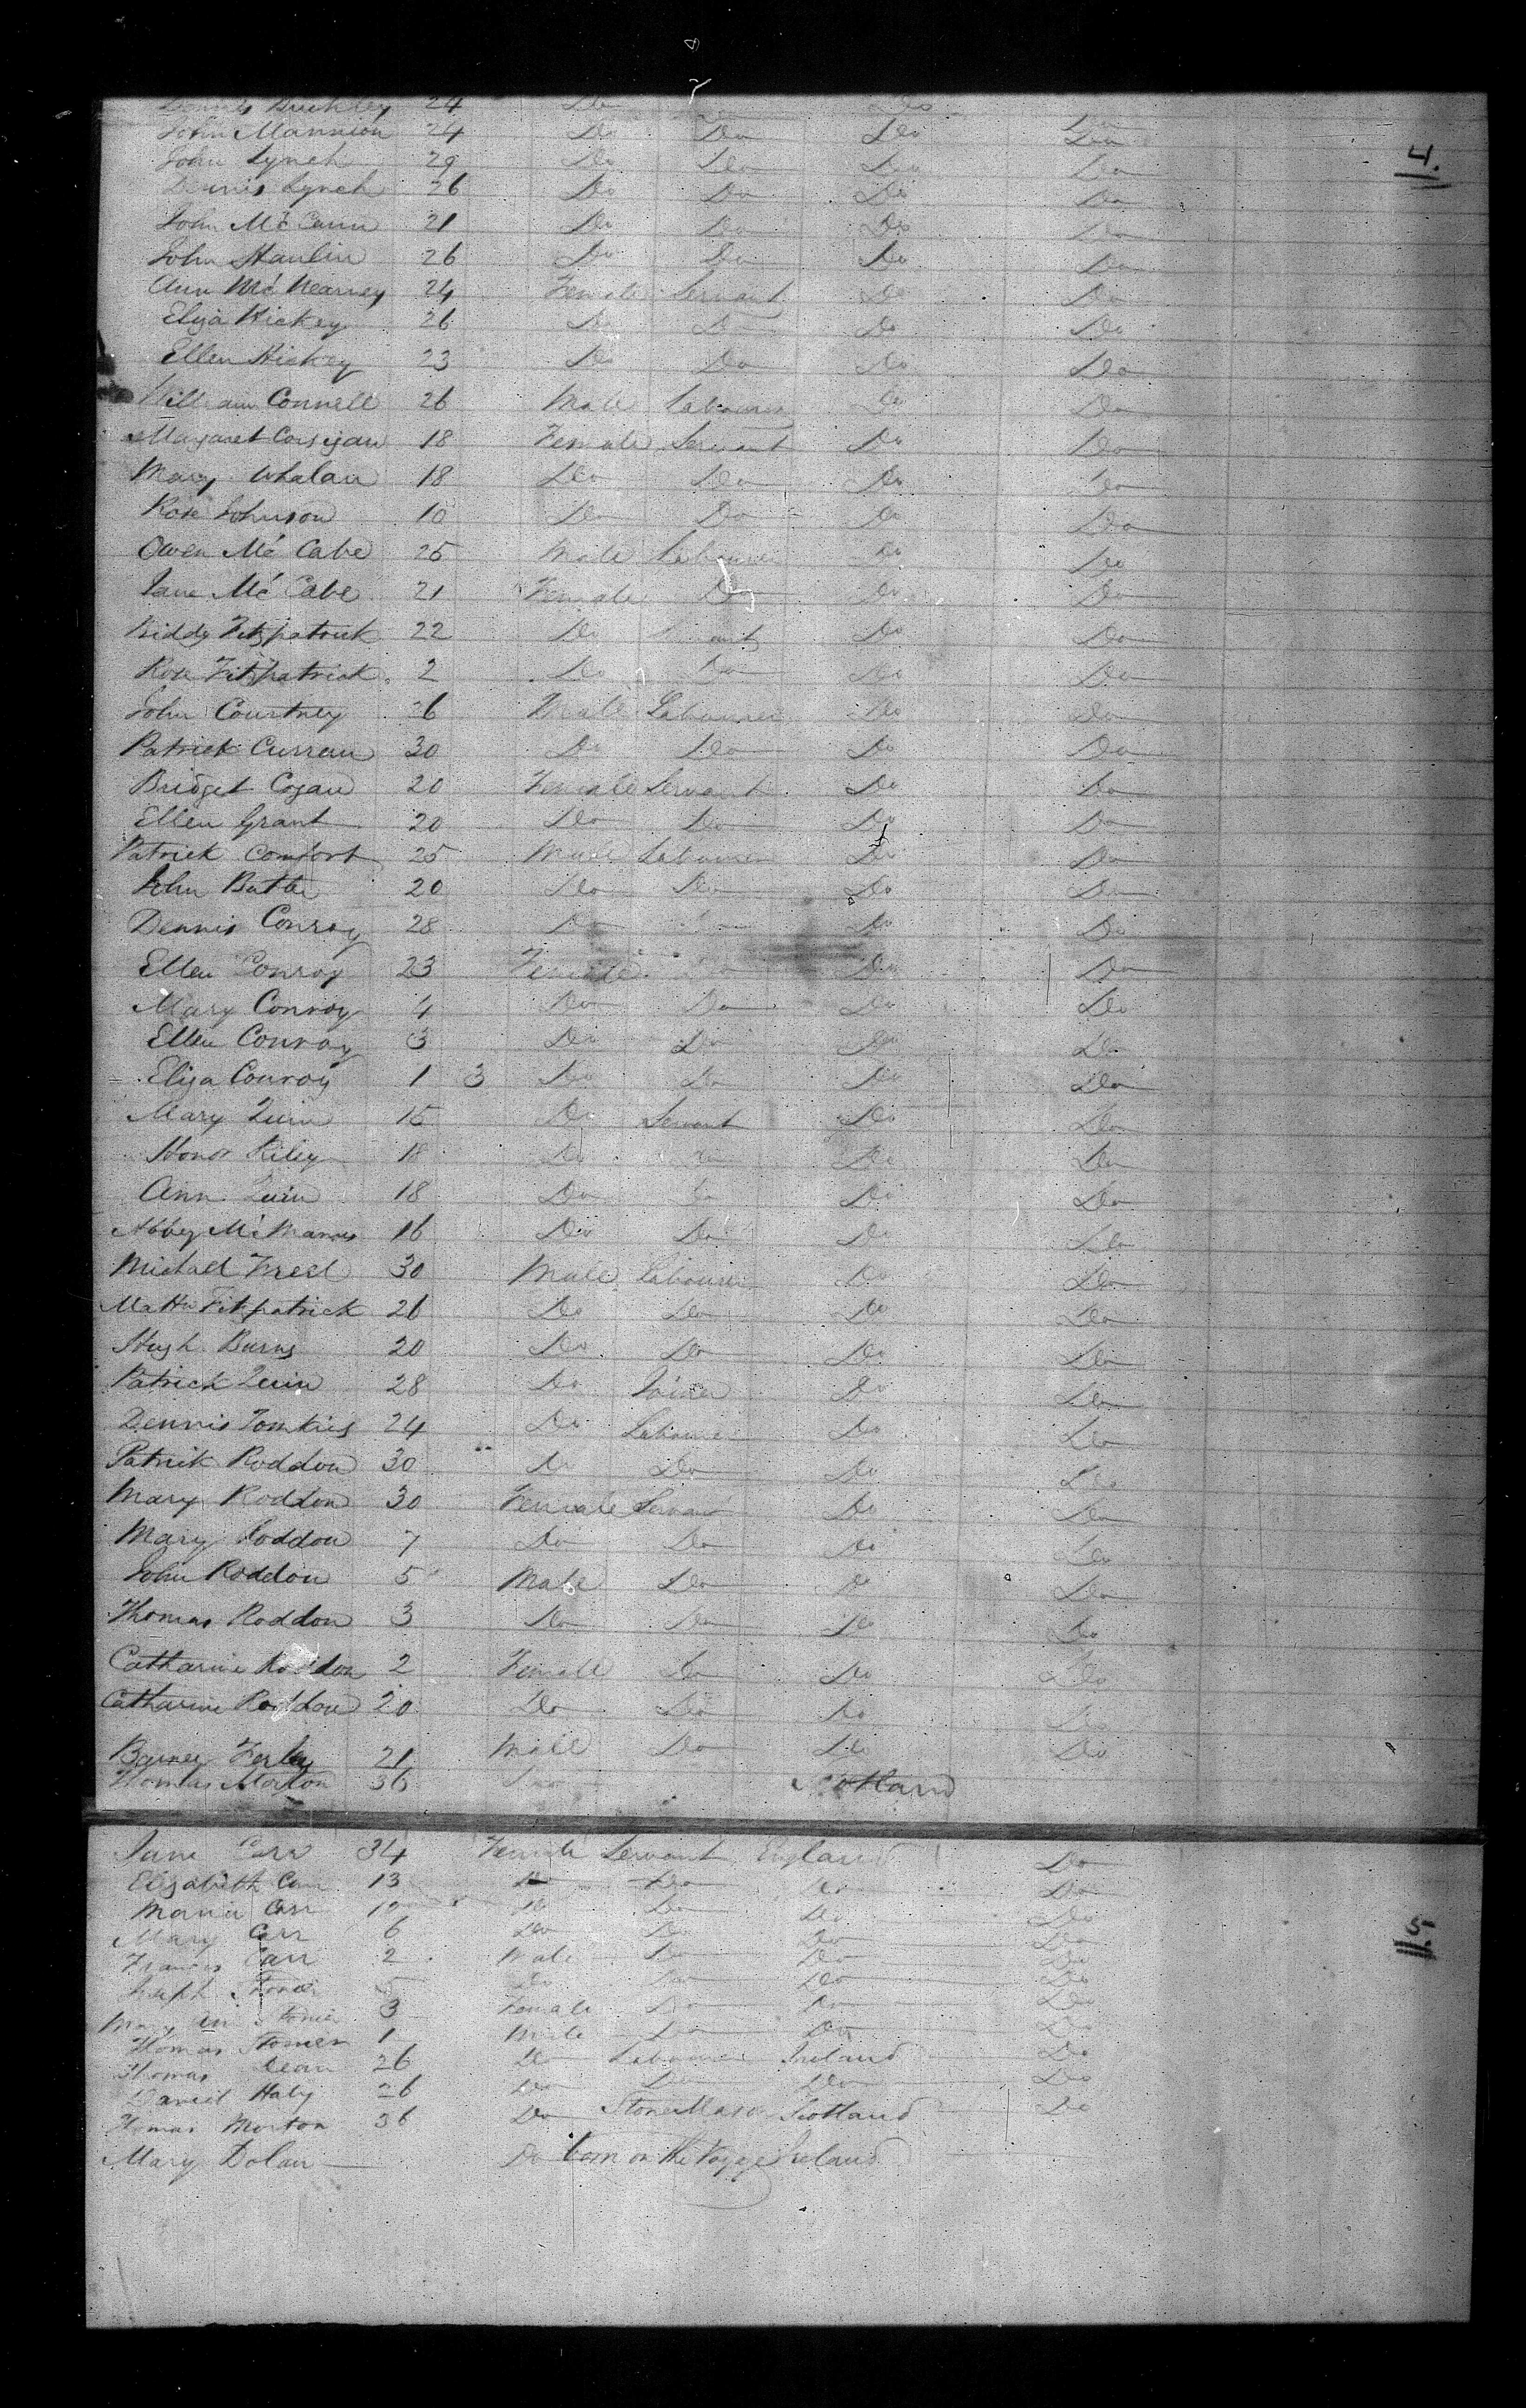 Dennis Buckley 24 Do Do
John Mannion 24 Do Do Do Do
John Lynch 29 Do Do Do Do
Dennis Lynch 26 Do Do Do Do
John Mc Cann 21 Do Do Do Do
John Hanlin 26 Do Do Do Do
Ann Mc Nearney 24 Female Servant Do Do
Eliza Hickey 26 Do Do Do Do
Ellen Hickey 23 Do Do Do Do
William Connell 26 Male Labourer Do Do
Margaret Corrigan 18 Female Servant Do Do
Mary Whalan 18 Do Do Do Do
Rose Johnson 10 Do Do Do Do
Owen Mc Cabe 25 Male Labourer Do Do
Jane Mc Cabe 21 Female Do Do Do
Biddy Fitzpatrick 22 Do Do Do
Rose Fitzpatrick 2 Do Do Do Do
John Courtney 26 Male Labourer Do Do
Patrick Curran 30 Do Do Do Do
Bridget Cogan 20 Female Servant Do Do
Ellen Grant 20 Do Do Do Do
Patrick Comfort 25 Male Labourer Do Do
John Butler 20 Do Do Do Do
Dennis Conroy 28 Do Do Do
Ellen Conroy 23 Female Do Do
Mary Conroy 4 Do Do Do Do
Ellen Conroy 3 Do Do Do Do
Eliza Conroy 1 3 Do Do Do Do
Mary Quin 15 Do Servant Do Do
Honor Riley 18 Do Do Do Do
Ann Quin 18 Do Do Do Do
Abby Mc Manus 16 Do Do Do Do
Michael 30 Male Labourer Do Do
Matth Fitzpatrick 26 Do Do Do Do
Hugh Burns 20 Do Do Do Do
Patrick Quin 28 Do Joiner Do Do
Dennis Tomkies 24 Do Labourer Do Do
Patrick Roddon 30 Do Do Do Do
Mary Roddon 30 Female Servant Do Do
Mary Roddon 7 Do Do Do Do
John Roddon 5 Male Do Do Do
Thomas Roddon 3 Do Do Do Do
Catharine Roddon 2 Female Do Do Do
Catharine Roddon 20 Do Do Do Do
Barney Ferley 21 Male Do Do Do
Thomas Morton 36 Do Scotland
4.
Jane Carr 34 Female Servant England Do
Elizabeth Carr 13 Do Do Do Do
Maria Carr 12 Do Do Do Do
Mary Carr 6 Do Do Do Do
Francis Carr 2 Male Do Do Do
Joseph Stoner 5 Do Do Do Do
Mary Ann Stoner 3 Female Do Do Do
Thomas Stoner 1 Male Do Do Do
Thomas Dean 26 Do Labourer Ireland Do
David Haly 26 Do Do Do Do
Thomas Morton 36 Do Stone Mason Scotland Do
Mary Dolan Do born on the Voyge Ireland
5